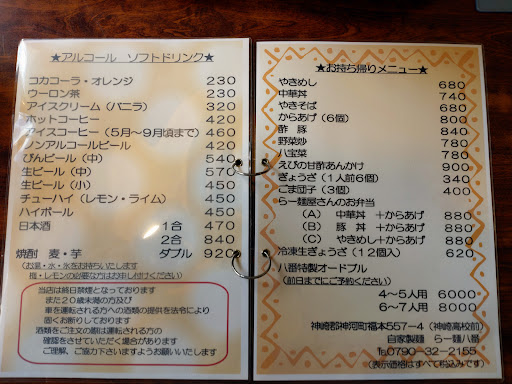 ★アルコール ソフトドリンク★
コカコーラ・オレンジ 230
ウーロン茶 230
アイスクリーム（バニラ） 320
ホットコーヒー 420
アイスコーヒー（5月～9月頃まで） 460
ノンアルコールビール 420
びんビール（中） 540
生ビール（中） 570
生ビール（小） 450
チューハイ（レモン・ライム） 450
ハイボール 450
日本酒 1合 470
2合 840
焼酎 麦・芋 ダブル 920
（お湯・水・氷をお持ちいたします
梅・レモンの必要な方はお申し付けください）
当店は終日禁煙となっております
また20歳未満の方及び
車を運転される方への酒類の提供を法令により
固くお断りしております
酒類をご注文の際は運転される方の
確認をさせていただく場合があります
ご理解、ご協力下さいますようお願いいたします
★お持ち帰りメニュー★
やきめし 680
中華丼 740
やきそば 680
からあげ（6個） 800
酢 豚 840
野菜炒 780
八宝菜 780
えびの甘酢あんかけ 900
ぎょうざ（1人前6個） 340
ごま団子（3個） 400
らー麺屋さんのお弁当
（A） 中華丼 ＋からあげ 880
（B） 豚 丼 ＋からあげ 880
（C） やきめし＋からあげ 880
冷凍生ぎょうざ（12個入） 620
八番特製オードブル
（前日までにご予約ください）
4～5人用 6000
6～7人用 8000
神崎郡神河町福本557-4（神崎高校前）
自家製麺 らー麺八番
℡0790-32-2155
（表示価格はすべて税込みです）